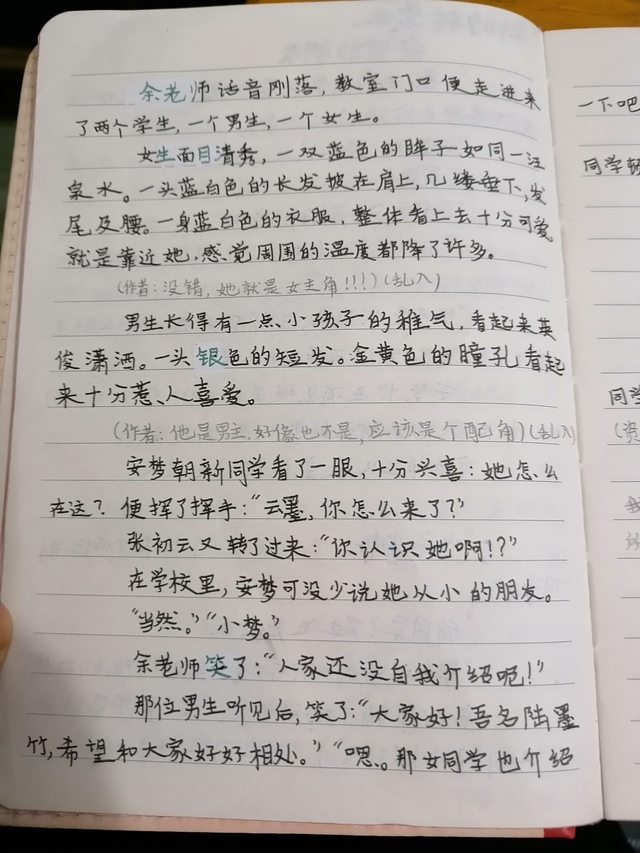 余老师话音刚落，教室门口便走进来
了两个学生，一个男生，一个女生。
女生面目清秀，一双蓝色的眸子如同一汪
泉水。一头蓝白色的长发披在肩上，几缕垂下，发
尾及腰。一身蓝白色的衣服，整体看上去十分可爱
就是靠近她，感觉周围的温度都降了许多。
(作者：没错，她就是女主角！！！)(乱入)
男生长得有一点、小孩子的稚气，看起来英
俊潇洒。一头银色的短发。金黄色的瞳孔看起
来十分惹、人喜爱。
(作者：他是男主，好像也不是，应该是个配角)(乱入)
安梦朝新同学看了一眼，十分兴喜：她怎么
在这？便挥了挥手：“云墨，你怎么来了？”
张初云又转了过来：“你认识她啊！？”
在学校里，安梦可没少说她从小的朋友。
“当然。”“小梦。”
余老师笑了：“人家还没自我介绍呢！”
那位男生听见后，笑了：“大家好！吾名陆墨
竹，希望和大家好好相处。”“嗯。那女同学也介绍
一下吧
同学
同学